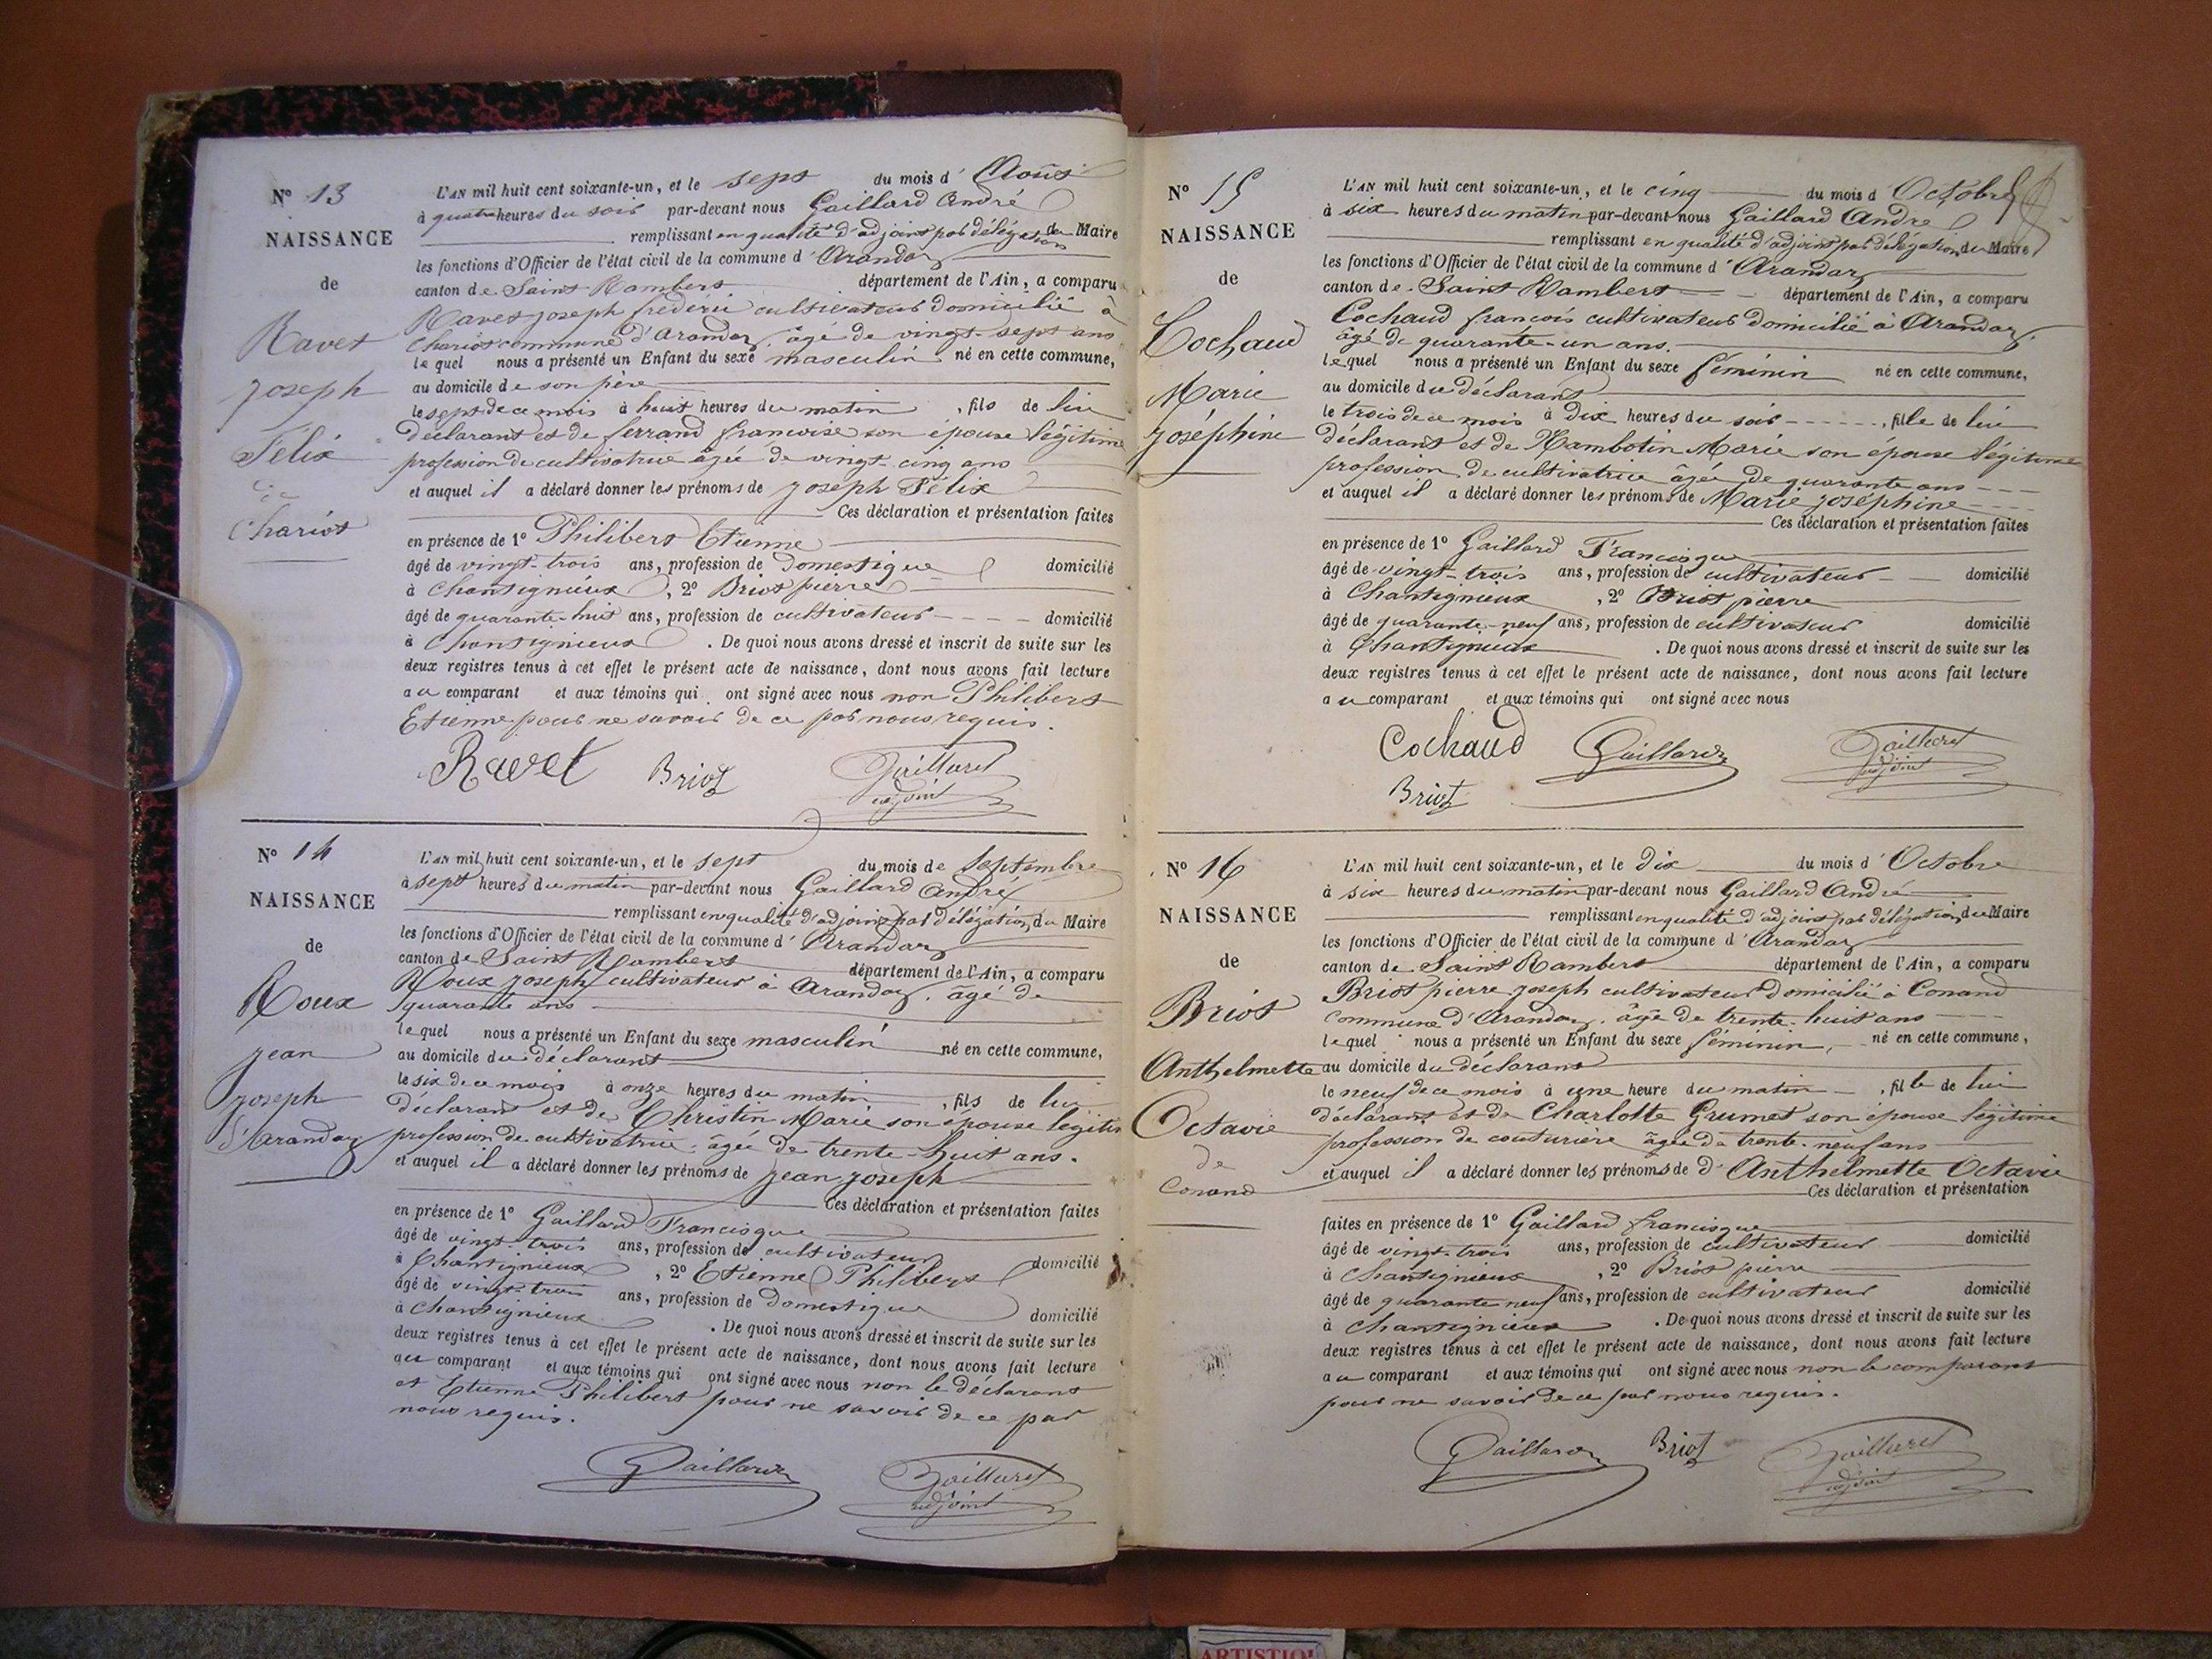 N° 13
NAISSANCE
de
Ravet
joseph
Félix
de
Chariot
L'AN mil huit cent soixante-un, et le sept du mois d' Août
à quatre heures du soir par-devant nous Gaillard André
remplissant en qualité d'adjoint par délégation du Maire
les fonctions d'Officier de l'état civil de la commune d' Arandaz
canton de Saint Rambert département de l'Ain, a comparu
Ravet joseph frédéric cultivateur domicilié à
Chariot commune d'Arandaz, âgé de vingt-sept ans
lequel nous a présenté un Enfant du sexe masculin né en cette commune,
au domicile de son père
le sept de ce mois à huit heures du matin, fils de lui
déclarant et de ferrand françoise son épouse légitime
profession de cultivatrice âgée de vingt-cinq ans
et auquel il a déclaré donner les prénoms de joseph Félix
Ces déclaration et présentation faites
en présence de 1° Philibert Etienne
âgé de vingt-trois ans, profession de domestique domicilié
à Chantignieux, 2° Briot pierre
âgé de quarante-huit ans, profession de cultivateur domicilié
à Chantignieux. De quoi nous avons dressé et inscrit de suite sur les
deux registres tenus à cet effet le présent acte de naissance, dont nous avons fait lecture
au comparant et aux témoins qui ont signé avec nous non Philibert
Etienne pour ne savoir de ce par nous requis.
Ravet Briot Gaillard
adjoint
N° 14
NAISSANCE
de
Roux
jean
joseph
d'Arandaz
L'AN mil huit cent soixante-un, et le sept du mois de Septembre
à sept heures du matin par-devant nous Gaillard André
remplissant en qualité d'adjoint par délégation du Maire
les fonctions d'Officier de l'état civil de la commune d' Arandaz
canton de Saint Rambert département de l'Ain, a comparu
Roux joseph cultivateur à Arandaz, âgé de
quarante ans
lequel nous a présenté un Enfant du sexe masculin né en cette commune,
au domicile du déclarant
le six de ce mois à onze heures du matin, fils de lui
déclarant et de Christin Marie son épouse légitim
profession de cultivatrice, âgée de trente-huit ans.
et auquel il a déclaré donner les prénoms de jean joseph
Ces déclaration et présentation faites
en présence de 1° Gaillard Francisque
âgé de vingt-trois ans, profession de cultivateur domicilié
à Chantignieux, 2° Etienne Philibert
âgé de vingt-trois ans, profession de domestique domicilié
à Chantignieux. De quoi nous avons dressé et inscrit de suite sur les
deux registres tenus à cet effet le présent acte de naissance, dont nous avons fait lecture
au comparant et aux témoins qui ont signé avec nous non le déclarant
et Etienne Philibert pour ne savoir de ce par
nous requis.
Gaillard Gaillard
adjoint
N° 15
NAISSANCE
de
Cochaud
Marie
joséphine
L'AN mil huit cent soixante-un, et le cinq du mois d Octobre
à six heures du matin par-devant nous Gaillard André
remplissant en qualité d'adjoint par délégation du Maire
les fonctions d'Officier de l'état civil de la commune d' Arandaz
canton de Saint Rambert département de l'Ain, a comparu
Cochaud françois cultivateur domicilié à Arandaz,
âgé de quarante-un ans.
lequel nous a présenté un Enfant du sexe féminin né en cette commune,
au domicile du déclarant
le trois de ce mois à dix heures du soir, fille de lui
déclarant et de Rambotin Marie son épouse légitime
profession de cultivatrice âgée de quarante ans
et auquel il a déclaré donner les prénoms de Marie joséphine
Ces déclaration et présentation faites
en présence de 1° Gaillard Francisque
âgé de vingt-trois ans, profession de cultivateur domicilié
à Chantignieux, 2° Briot pierre
âgé de quarante-neuf ans, profession de cultivateur domicilié
à Chantignieux. De quoi nous avons dressé et inscrit de suite sur les
deux registres tenus à cet effet le présent acte de naissance, dont nous avons fait lecture
au comparant et aux témoins qui ont signé avec nous
Cochaud Gaillard Gaillard
adjoint
Briot
N° 16
NAISSANCE
de
Briot
Anthelmette
Octavie
de
Conand
L'AN mil huit cent soixante-un, et le dix du mois d' Octobre
à six heures du matin par-devant nous Gaillard André
remplissant en qualité d'adjoint par délégation du Maire
les fonctions d'Officier de l'état civil de la commune d' Arandaz
canton de Saint Rambert département de l'Ain, a comparu
Briot pierre joseph cultivateur domicilié à Conand
commune d'Arandaz, âgé de trente-huit ans
lequel nous a présenté un Enfant du sexe féminin, né en cette commune,
au domicile du déclarant
le neuf de ce mois à une heure du matin, fille de lui
déclarant et de Charlotte Grumet son épouse légitime
profession de couturière âgée de trente-neuf ans
et auquel il a déclaré donner les prénoms de d'Anthelmette Octavie
Ces déclaration et présentation
faites en présence de 1° Gaillard francisque
âgé de vingt-trois ans, profession de cultivateur domicilié
à Chantignieux, 2° Briot pierre
âgé de quarante neuf ans, profession de cultivateur domicilié
à Chantignieux. De quoi nous avons dressé et inscrit de suite sur les
deux registres tenus à cet effet le présent acte de naissance, dont nous avons fait lecture
au comparant et aux témoins qui ont signé avec nous non le comparant
pour ne savoir de ce par nous requis.
Gaillard Briot Gaillard
adjoint